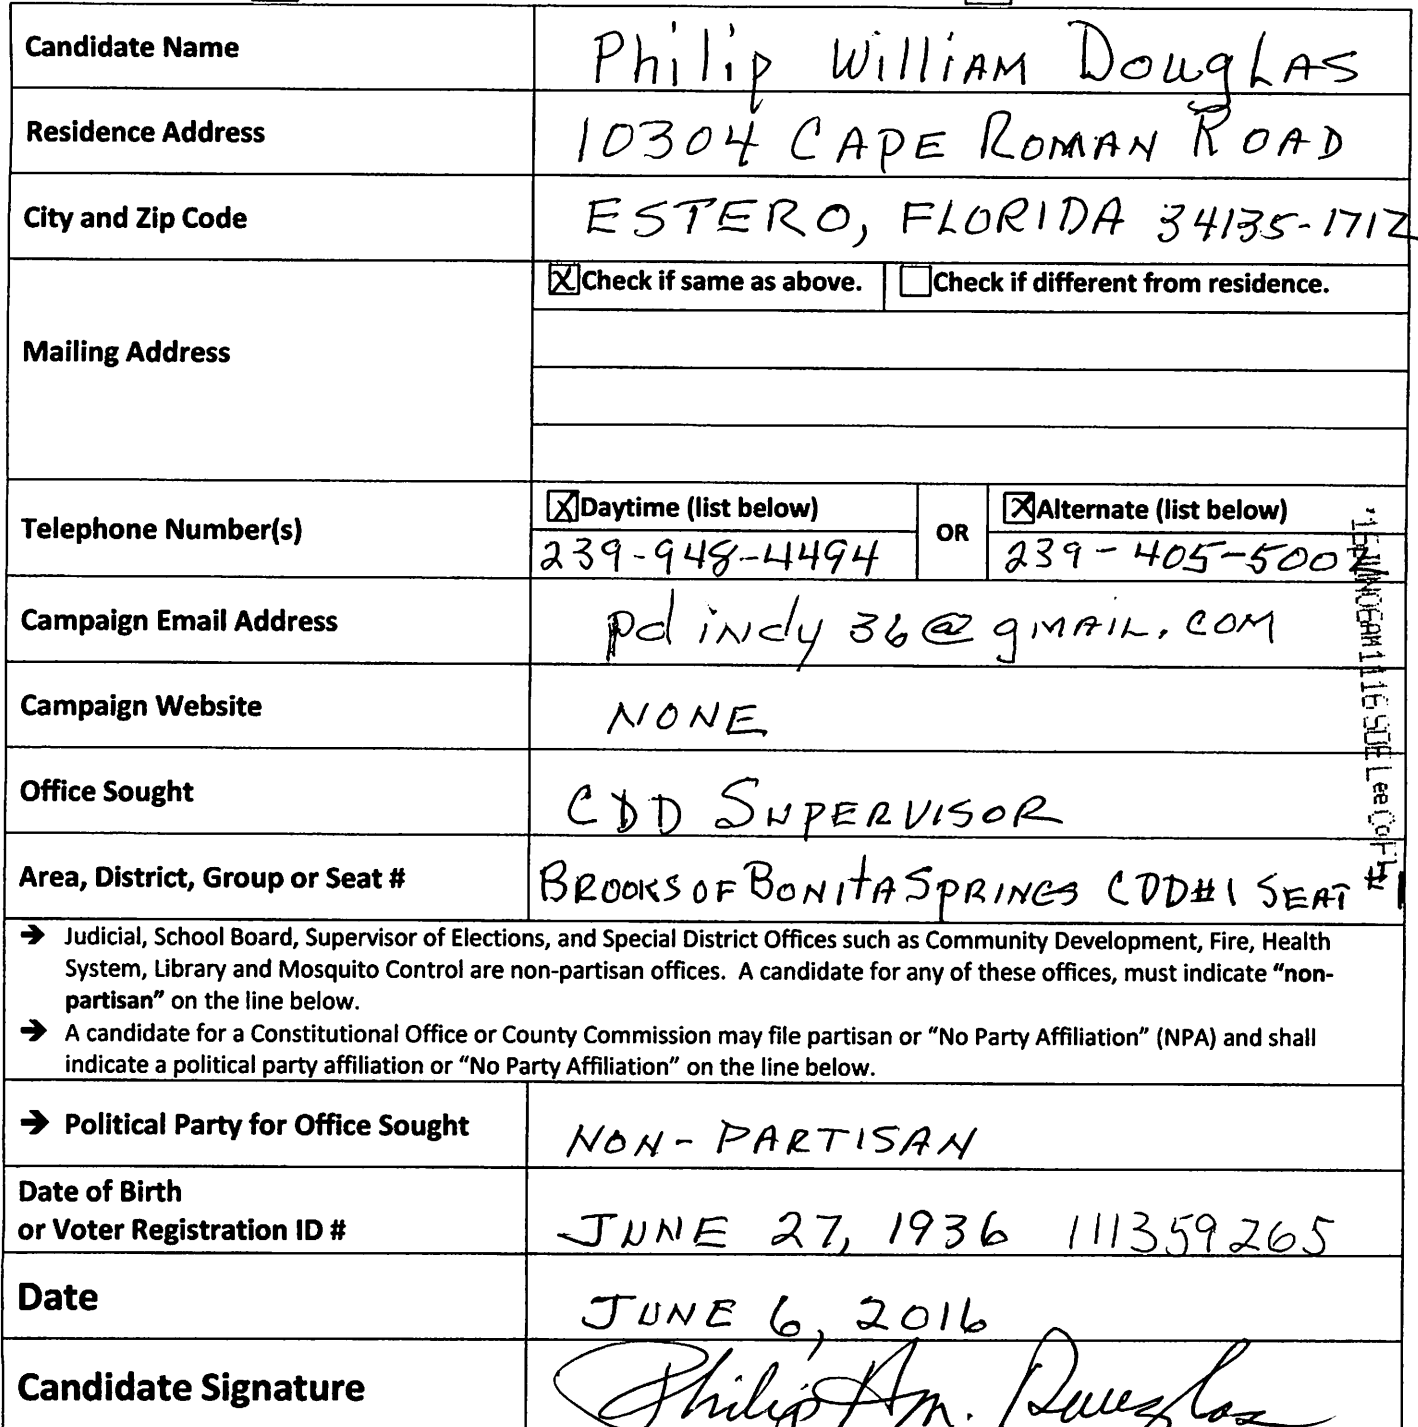 Candidate Name Philip William Douglas
Residence Address 10304 CAPE ROMAN ROAD
City and Zip Code ESTERO, FLORIDA 34135-1712
☒ Check if same as above. ☐ Check if different from residence.
Mailing Address
☒ Daytime (list below) OR ☒ Alternate (list below)
Telephone Number(s) 239-948-4494 239-405-500
Campaign Email Address pdindy36@gmail.com
Campaign Website NONE
Office Sought CDD SUPERVISOR
Area, District, Group or Seat # BROOKS OF BONITA SPRINGS CDD#1 SEAT #1
→ Judicial, School Board, Supervisor of Elections, and Special District Offices such as Community Development, Fire, Health
System, Library and Mosquito Control are non-partisan offices. A candidate for any of these offices, must indicate "non-
partisan" on the line below.
→ A candidate for a Constitutional Office or County Commission may file partisan or "No Party Affiliation" (NPA) and shall
indicate a political party affiliation or "No Party Affiliation" on the line below.
→ Political Party for Office Sought NON-PARTISAN
Date of Birth
or Voter Registration ID # JUNE 27, 1936 111359265
Date JUNE 6, 2016
Candidate Signature Philip Wm. Douglas
SOE Lee Co Fl